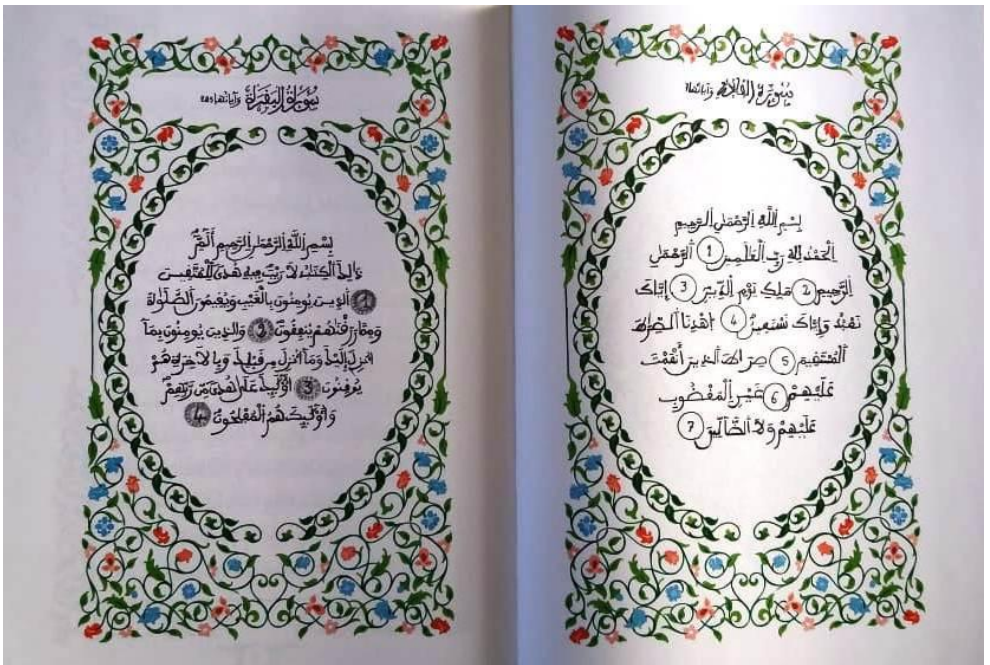 سورة الفاتحة وآياتها
بسم الله الرحمن الرحيم
الحمد لله رب العلمين 1 الرحمن
الرحيم 2 ملك يوم الدين 3 إياك
نعبد وإياك نستعين 4 اهدنا الصراط
المستقيم 5 صراط الذين أنعمت
عليهم 6 غير المغضوب
عليهم ولا الضالين 7
سورة البقرة وآياتها
بسم الله الرحمن الرحيم ألم
ذلك الكتاب لا ريب فيه هدى للمتقين
1 الذين يومنون بالغيب ويقيمون الصلوة
ومما رزقنهم ينفقون 2 والذين يومنون بما
أنزل إليك وما أنزل من قبلك وبالاخرة هم
يوقنون 3 أولئك على هدى من ربهم
وأولئك هم المفلحون 4